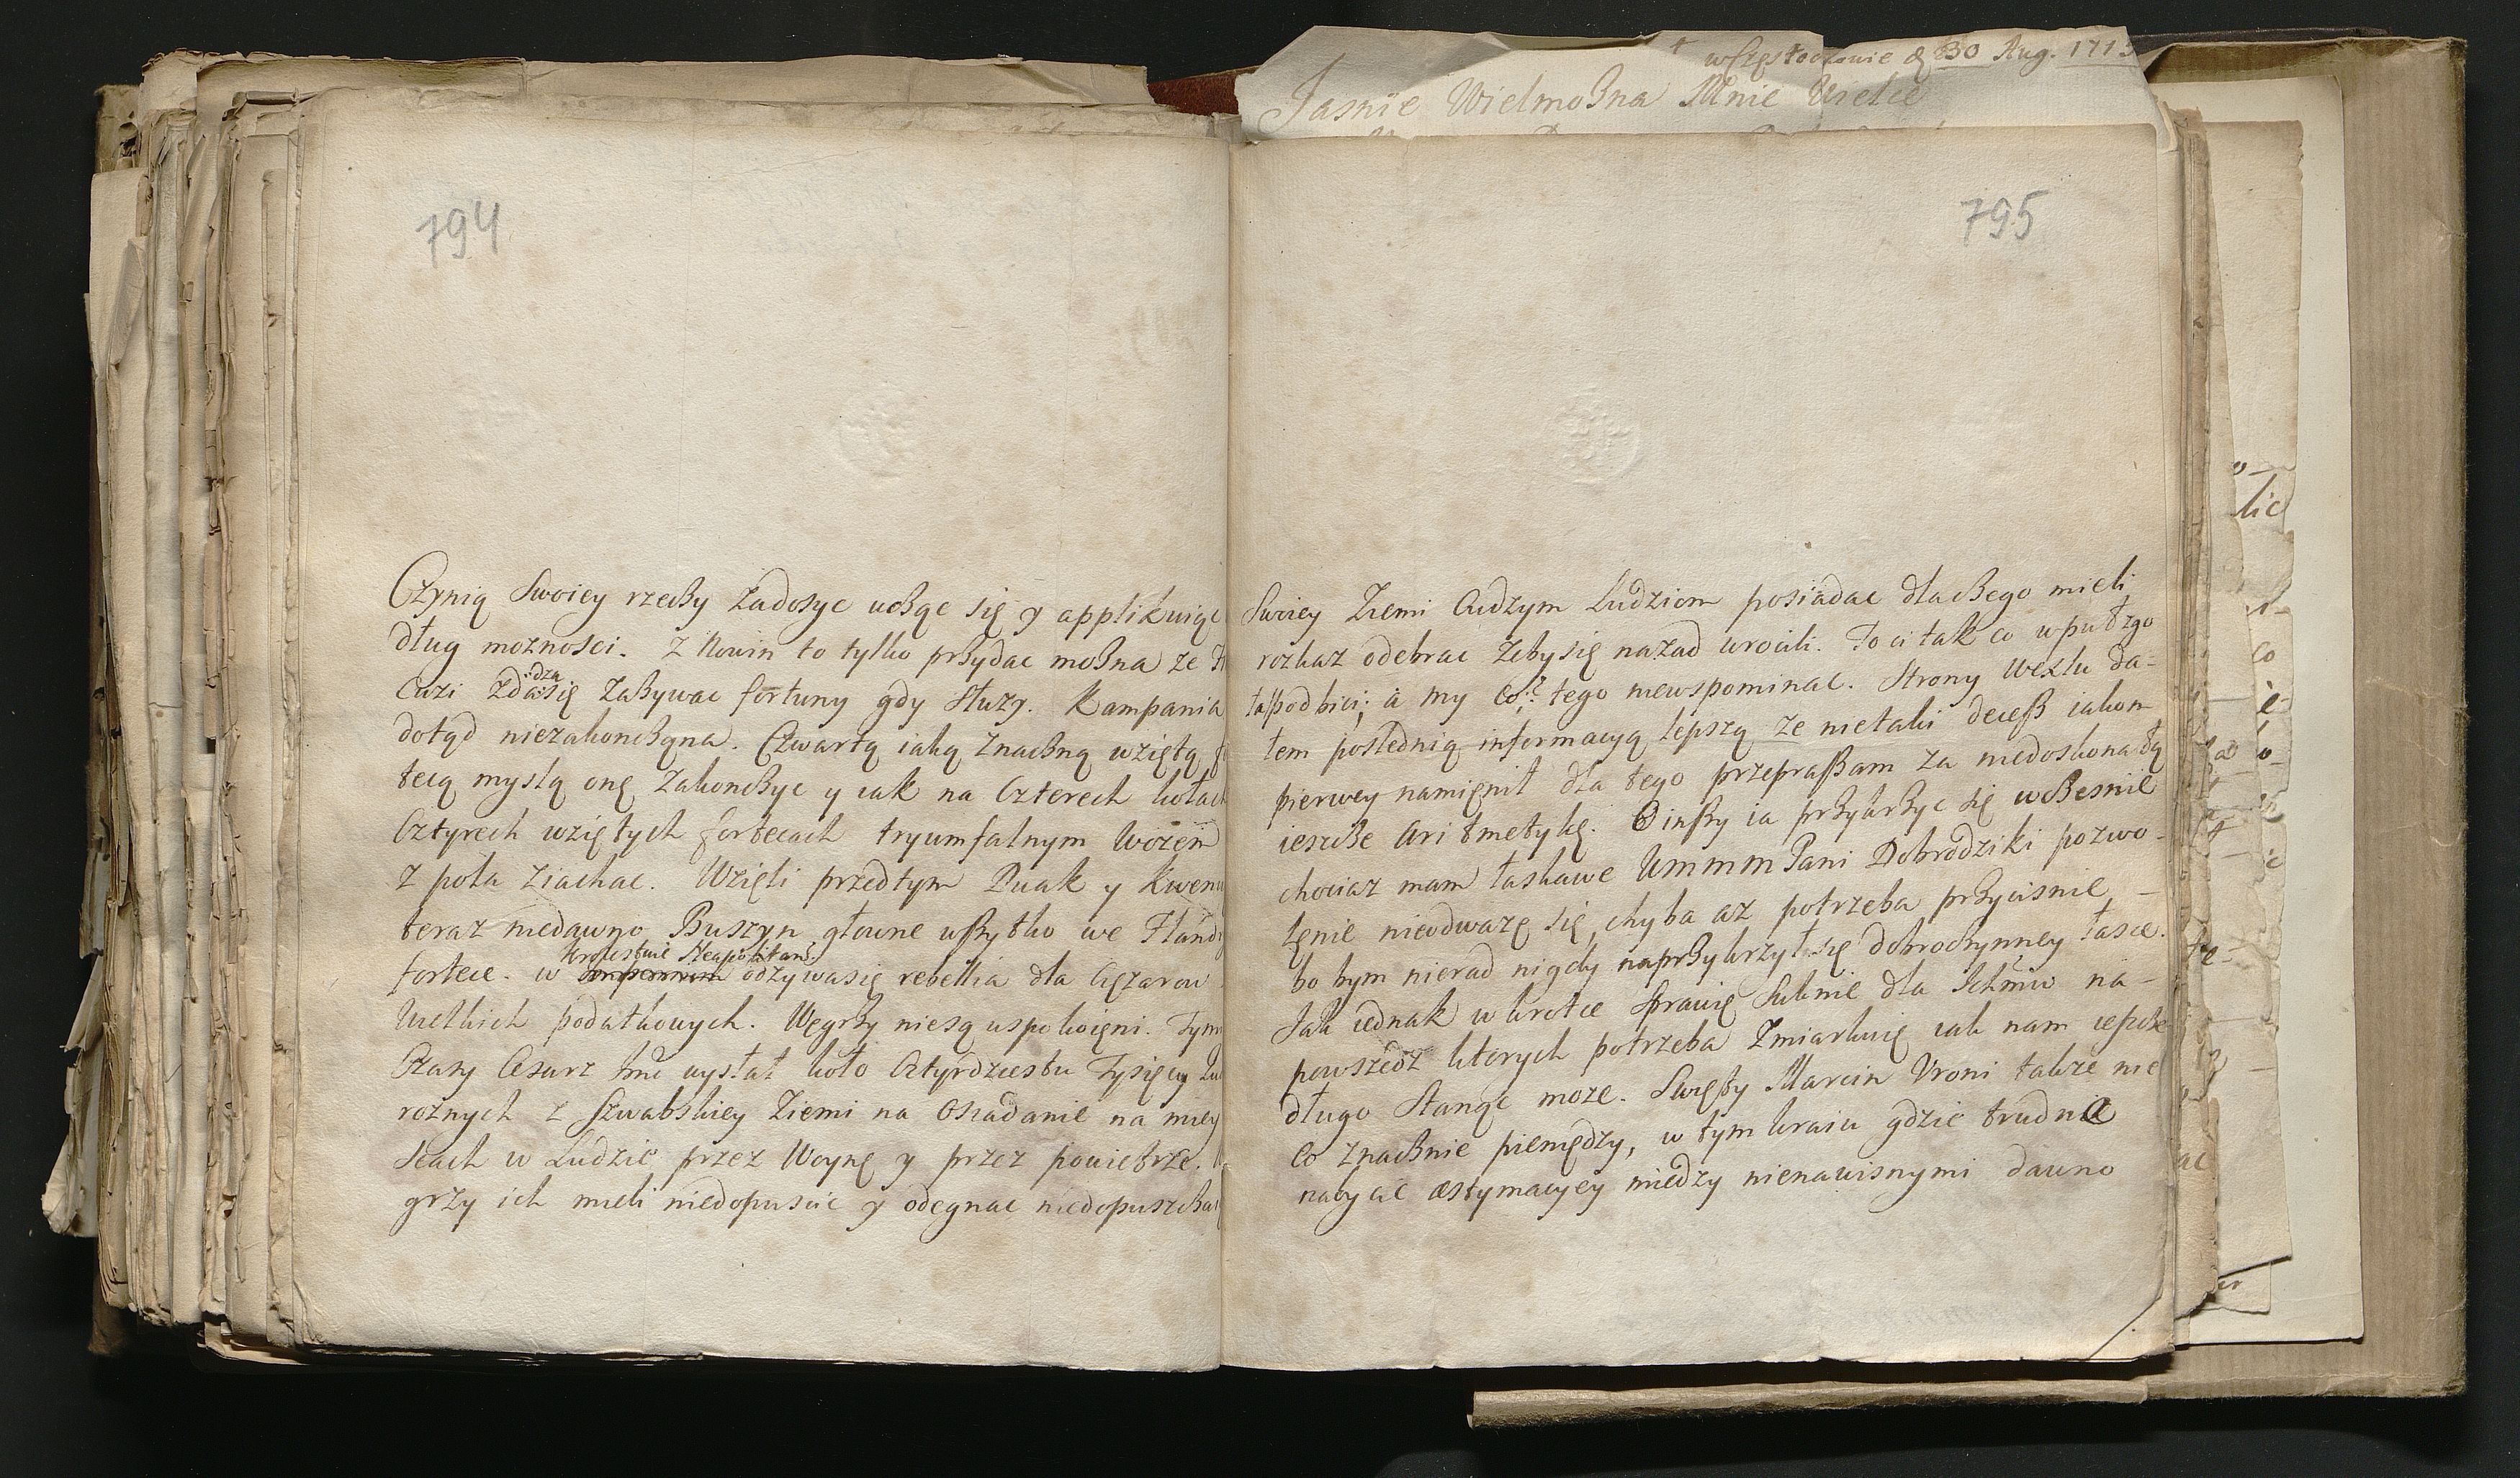 w Częstochowie d 30 Aug. 1713
Jasnie Wielmożna Mnie Wielce
794
Czynią swoiey rzeczy zadosyc ucząc się y applikuiąc
dług moznosci. Z Nowin to tylko przydac można ze
cuzi zda :dza: się zażywac fortuny gdy służy. Kampania
dotąd niezakończona. Czwartą iaką znaczną wziętą
tecą myslą onę zakończyc y iak na czterech kołach
cztyrech wziętych fortecach tryumfalnym wozem
z pola ziachac. Wzięli przedtym Duak y
teraz niedawno Buszyn główne wszytko we
fortece. w Krolestwie Neapolitań: odzywa się rebellia dla Cięzarow
wielkich podatkowych. Węgrzy nie są uspokoieni. Tym
czasy Cesarz Jmć wysłał koło cztyrdziestu Tysięcy
roznych z Szwabskiey Ziemi na osiadanie na miey
scach w Ludzie przez Woynę y przez powietrze.
grzy ich mieli niedopuscic y odegnac niedopuszcza
795
Swoiey Ziemi Cudzym Ludziom posiadac dlaczego mieli
rozkaz odebrac zeby się nazad wrocili. To ci tak co
a my tego niewspominac. Strony Wexlu da-
tem poslednią informacyą lepszą ze nietaki decess iakom
pierwey namienił dla tego przepraszam za niedoskonałą
ieszcze Aritmetykę. Inszy ia przykrzyc się wczesnie
chociaz mam łaskawe Ummm Pani Dobrodziki pozwo-
lenie nieodwazę się, chyba az potrzeba przycisnie
bo bym nierad nigdy naprzykrzył się dobroczynney łasce.
Jak iednak w krotce sprawię suknie dla Ichmciow na-
powszedz ktorych potrzeba zmiarkuię iak nam ieszcze
długo stanąc moze. Swięty Marcin Uroni takze nie
co znacznie pieniędzy, w tym kraiu gdzie trudnie
nabyc ic æstymacyey miedzy nienawisnymi dawno